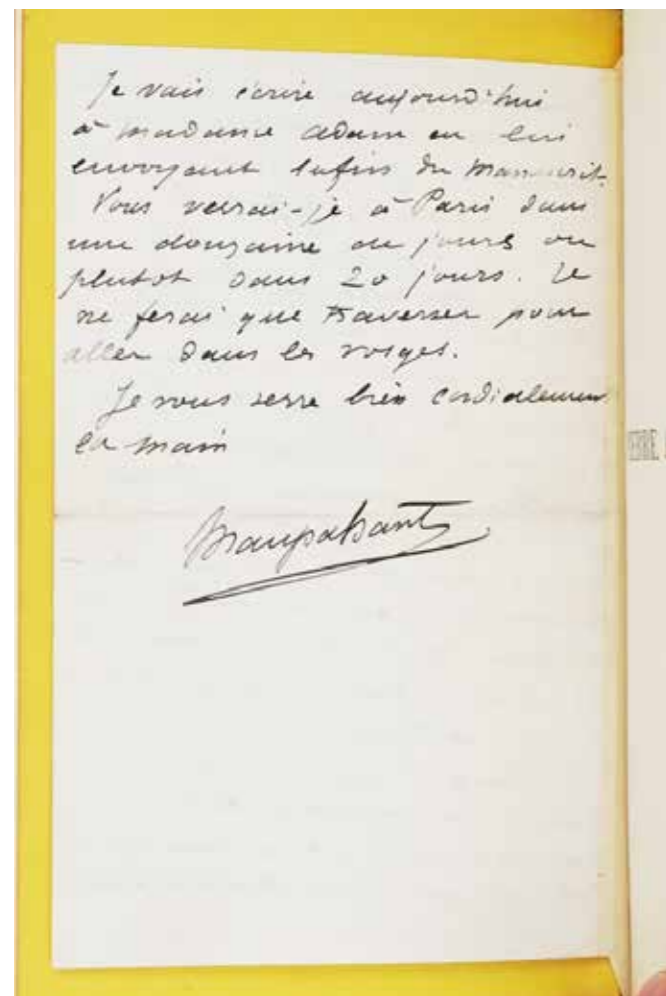 Je vais écrire aujourd'hui
à madame Adam en lui
envoyant la fin du manuscrit.
Vous verrai-je à Paris dans
une douzaine de jours ou
plutot dans 20 jours. Je
ne ferai que traverser pour
aller dans les vosges.
Je vous serre bien cordialement
la main
Maupassant